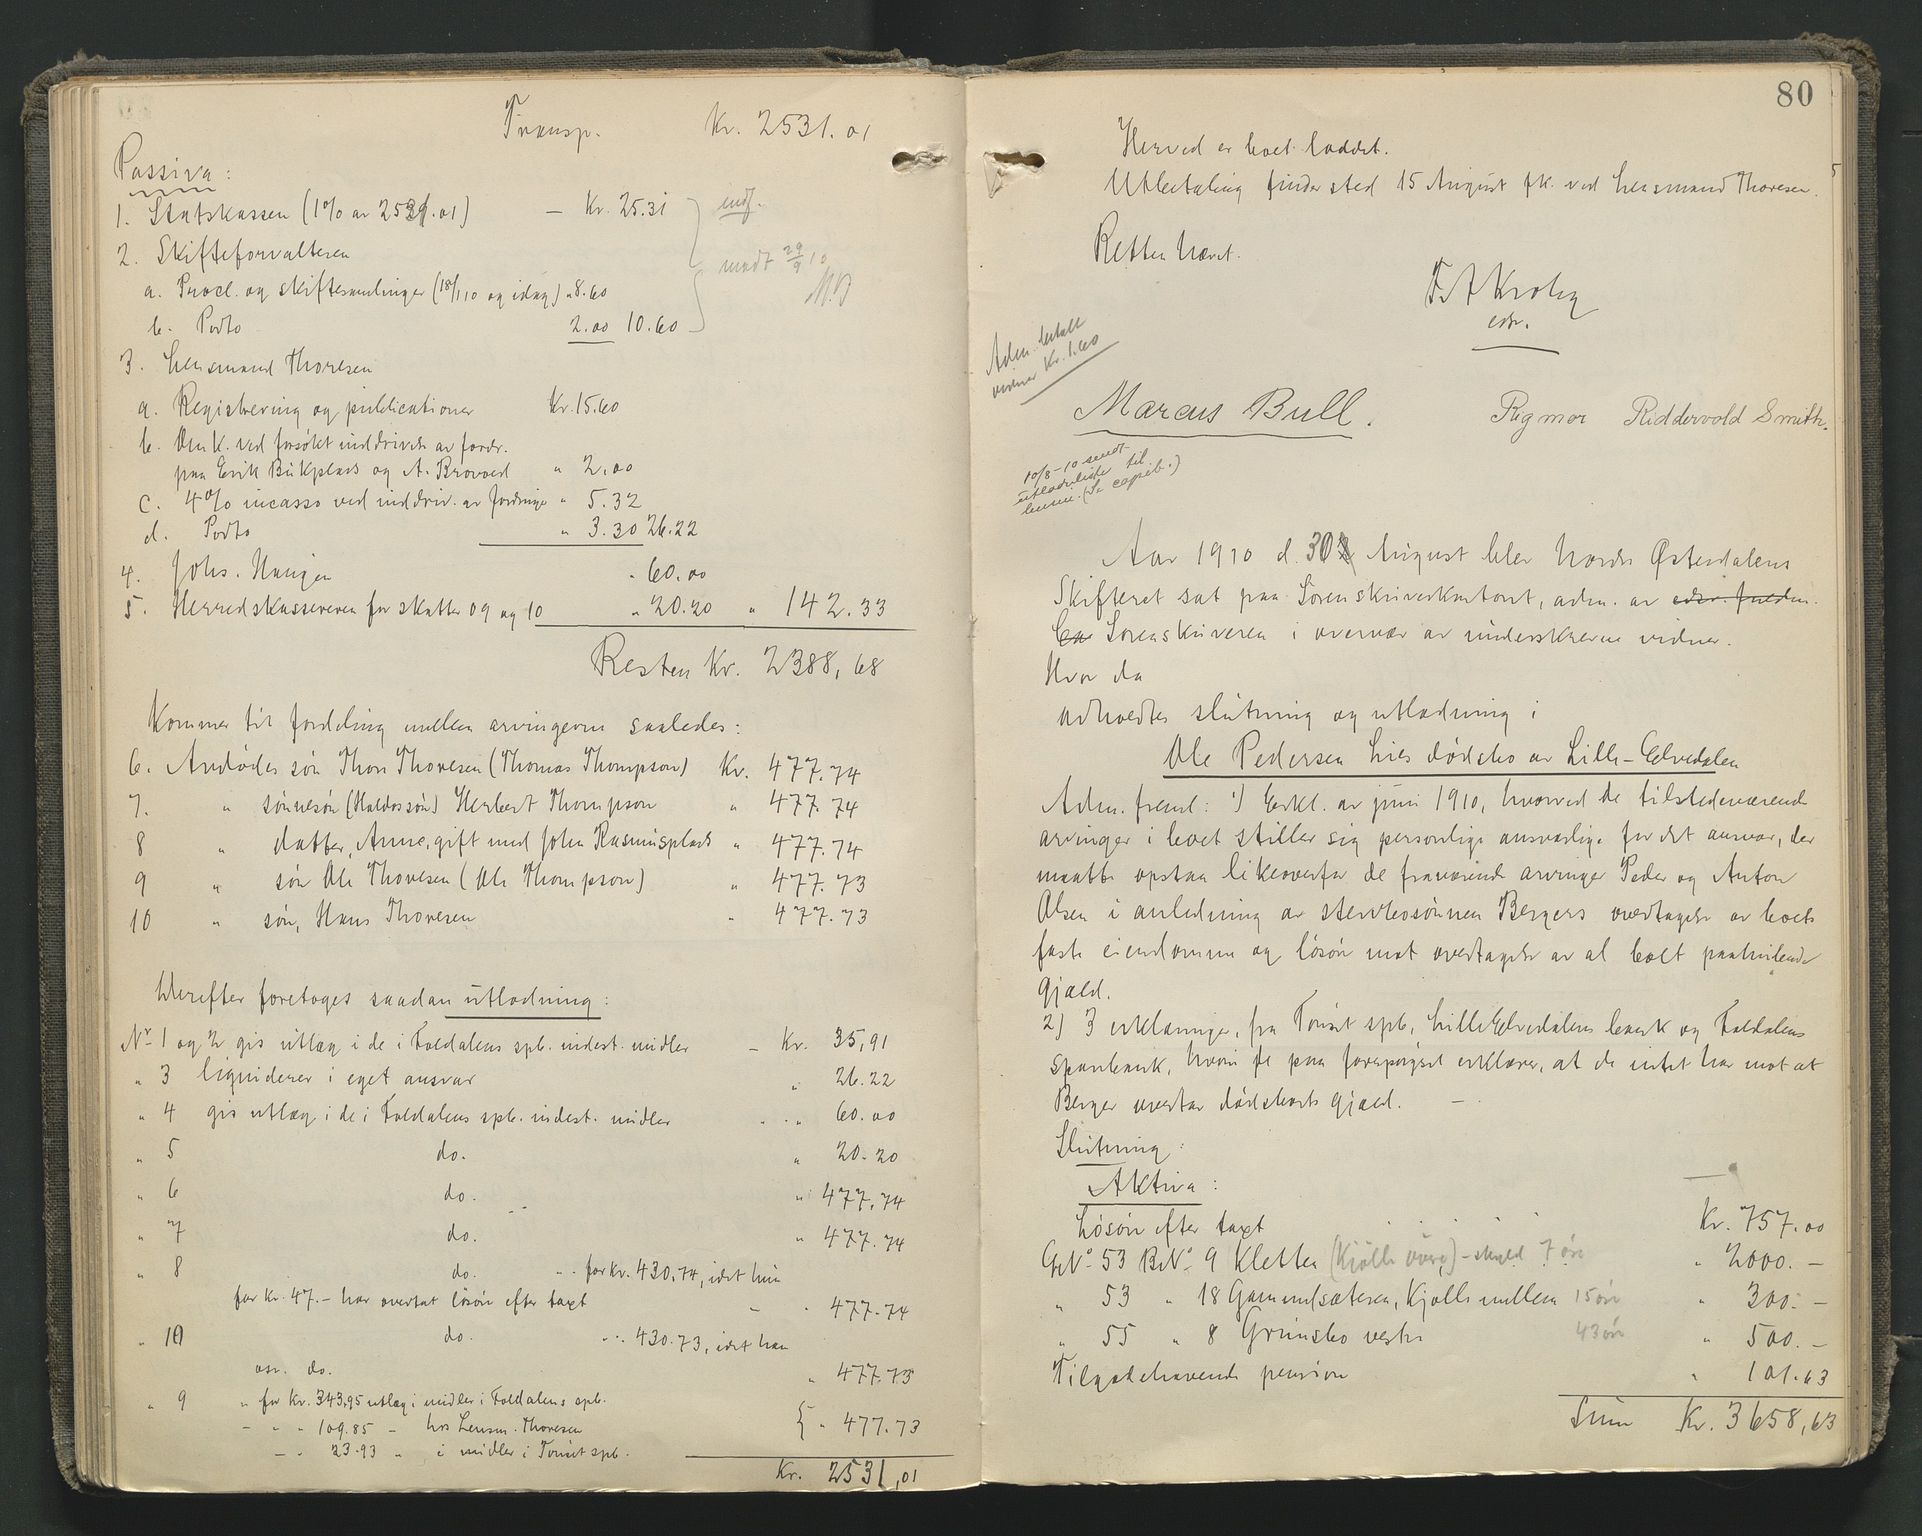 Transp. Kr. 2531.01
Passiva:
1. Statskassen (1% av 2531.01) — Kr. 25.31
2. Skifteforvalteren
a. Procl. og skiftesamlinger (18/1 10 og idag) " 8.60
b. Porto 2.00 10.60
3. Lensmand Thoresen
a. Registrering og publicationer Kr. 15.60
b. Omk. ved forsøkt inddrivelse av fordr.
paa Erik Bukplads og A. Brovold " 2.00
c. 4% incasso ved inddriv. av fordringer " 5.32
d. Porto " 3.30 26.22
4. Johs. Haugen " 60.00
5. Herredskassereren for skatter 09 og 10 " 20.20 " 142.33
Resten Kr. 2388,68
Kommer til fordeling mellem arvingerne saaledes:
6. Avdødes søn Thor Thoresen (Thomas Thompson) Kr. 477.74
7. " sønnesøn (Haldossøn) Herbert Thompson " 477.74
8 " datter, Anne, gift med John Rasmusplads " 477.74
9 " søn Ole Thoresen (Ole Thompson) " 477.73
10 " søn, Hans Thoresen " 477.73
Herefter foretoges saadan utlodning:
Nr. 1 og 2 gis utlæg i de i Foldalens spb. indest. midler — Kr. 35,91
" 3 liquiderer i eget ansvar " 26.22
" 4 gis utlæg i de i Foldalens spb. indest. midler " 60.00
" 5 do. " 20.20
" 6 do. " 477.74
" 7 do. " 477.74
" 8 do. for kr. 430.74, idet hun
for kr. 47.— har overtat løsøre efter taxt " 477.74
" 10 do. 430.73, idet han
do. " 477.73
" 9 " for Kr. 343,95 utlæg i midler i Foldalens spb.
— " 109.85 — hos Lensm. Thoresen { " 477.73
— " 23.93 " i midler i Tønset spb.
Kr. 2531,01
80
Herved er boet sluttet.
Utbetaling finder sted 15 August fk. ved lensmand Thoresen.
Retten hævet.
Adm. betalt
vidner Kr. 1.60
Marcus Bull. Rigmor Riddervold Smith.
10/8-10 sendt
utlodnliste til
Aar 1910 d. 30 August blev Nordre Østerdalens
Skifteret sat paa Sorenskriverkontoret, adm. av edsv. fuldm.
Sorenskriveren i overvær av underskrevne vidner.
Hvor da
avholdtes slutning og utlodning i
Ole Pedersen Lies dødsbo av Lille-Elvedalen
Adm. freml: 1) Erkl. av juni 1910, hvorved de tilstedeværende
arvinger i boet stiller sig personlige ansvarlige for det ansvar, der
maatte opstaa likeoverfor de fraværende arvinger Peder og Anton
Olsen i anledning av stervbosønnen Bergers overtagelse av boets
faste eiendomme og løsøre mot overtagelse av al boet paahvilende
gjæld.
2) 3 erklæringer, fra Tønset spb, Lille Elvedalens bank og Foldalens
sparebank, hvori de paa forespørgsel erklærer, at de intet har mot at
Berger overtar dødsboets gjæld. —
Slutning:
Aktiva:
Løsøre efter taxt Kr. 757.00
GNo. 53 BNo. 9 Kletten (Kjølle øvre) - skyld 7 øre " 2000.—
" 53 " 18 Gammelsæteren, Kjølle mellem 15 øre " 300.—
" 55 " 8 Grimsbo vestre 43 øre " 500.—
Tilgodehavende pension " 101.63
Sum Kr. 3658,63